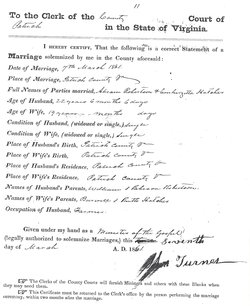 11
To the Clerk of the County Court of
Patrick in the State of Virginia.
I HEREBY CERTIFY, That the following is a correct Statement of a
Marriage solemnized by me in the County aforesaid:
Date of Marriage, 7th March 1861
Place of Marriage, Patrick County Va
Full Names of Parties married,
Age of Husband, 22 years 6 months 6 days
Age of Wife, 19 years months days
Condition of Husband, (widowed or single,) Single
Condition of Wife, (widowed or single,) Single
Place of Husband's Birth, Patrick County Va
Place of Wife's Birth, Patrick County Va
Place of Husband's Residence, Patrick County Va
Place of Wife's Residence, Patrick County Va
Names of Husband's Parents, William &
Names of Wife's Parents, & Ruth
Occupation of Husband, Farmer
Given under my hand as a Minister of the Gospel
(legally authorized to solemnize Marriages,) this Seventh
day of March A. D. 1861
Turner
The Clerks of the County Courts will furnish Ministers and others with these Blanks when
they may need them.
This Certificate must be returned to the Clerk's office by the person performing the marriage
ceremony, within two months after the marriage.